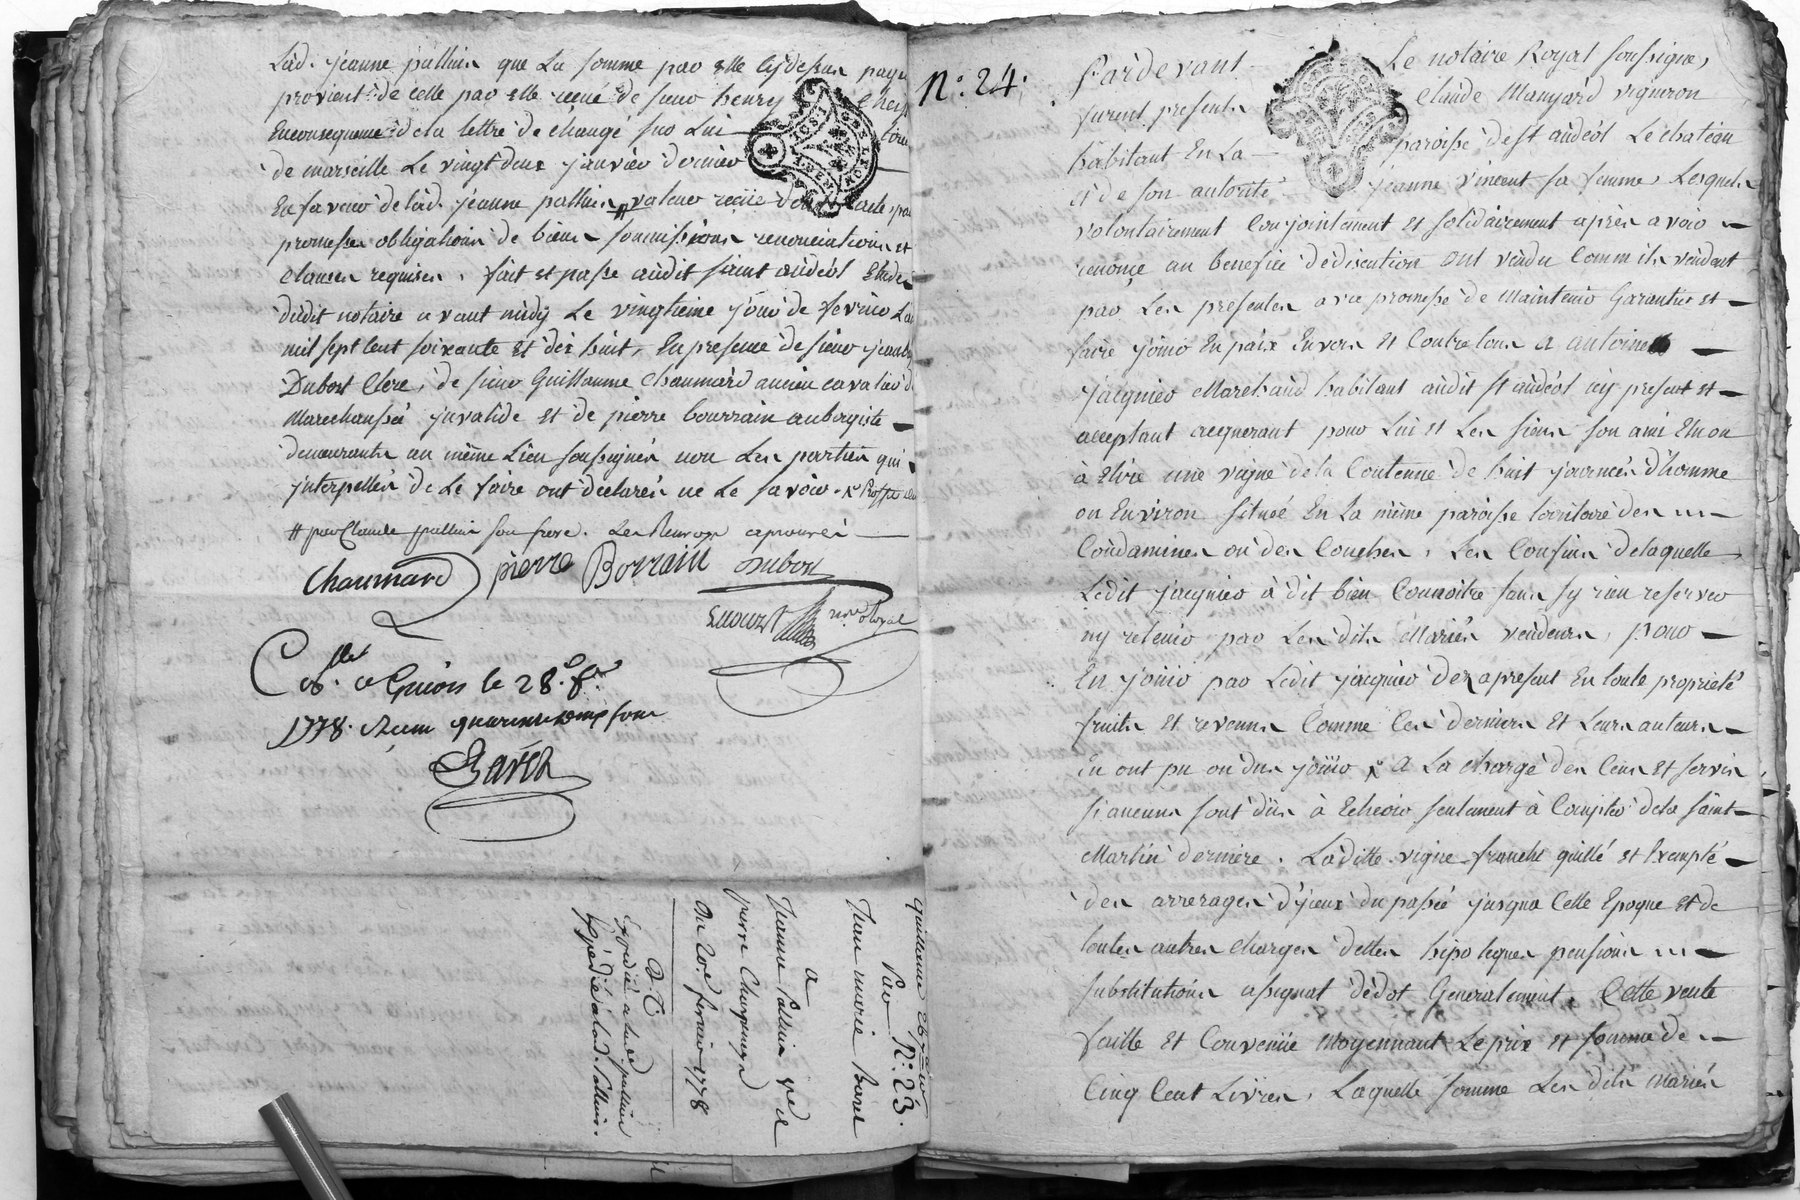 Lad. jeanne pallien que La somme par elle cy dessus payé
provient de celle par elle reçue de sieur henry
En consequence de la lettre de change sur Lui
de marseille Le vingt deux janvier dernier
En faveur de lad. jeanne pallien, # valeur reçüe
promesses obligations de biens soumissions renonciations et
clauses requises. fait et passé audit saint andéol Etude
dudit notaire avant midy Le vingtieme jour de fevrier
mil sept cent soixante et dix huit, En presence de sieur jean
Dubost Clerc, de sieur Guillaume Chaumard ancien cavalier de
Marechaussée invalide et de pierre bourrain aubergiste
demeurants au même Lieu soussignés non Les parties qui
interpellés de Le faire ont declarés ne Le savoir.
# par Claude pallien son frere. Les Renvois aprouvés
Chaumard pierre Borrain Dubost
nre Royal
à Givors le 28. f.
1778. Reçu
N° 23.
Jean marie
a
Jeanne Pallien ve de
pierre
Du 20e fevrier 1778
Expedié a lad. pallien
Expedié a lad. Pallien.
N° 24.
Pardevant Le notaire Royal soussigné,
furent presents Claude Manyard vigneron
habitant En La paroisse de st andéol Le chateau
et de son autorité jeanne vincent sa femme, Lesquels
volontairement Conjointement et solidairement après avoir
renoncé au benefice de discution ont vendu Comm ils vendent
par Les presentes avec promesse de Maintenir Garantir et
faire jouir En paix Envers et Contre tous a antoine
jacquier Marchand habitant audit st andéol icy present et
acceptant acquerant pour Lui et Les siens son ami Elu ou
à Elire une vigne de la Contenue de huit journées d'homme
ou Environ située En La même paroisse territoire des
Condamines ou des Couches, Les Confins de laquelle
Ledit jacquier à dit bien Connoitre sans sy rien reserver
ny retenir par Les dits Mariés vendeurs, pour
En jouir par Ledit jacquier dez apresent En toute proprieté
fruits et revenus Comme Ces derniers et Leurs auteurs
En ont pu ou dus joüir, A La charge des Cens et servis
si aucuns sont dûs à Echeoir seulement à Compter de la saint
Martin derniere. Laditte vigne franche quitte et Exempte
des arrerages d'yceux du passé jusqua Cette Epoque et de
toutes autres charges dettes hipoteques pensions
substitutions assignat de dot Generalement. Cette vente
faitte et Convenüe moyennant Le prix et somme de
Cinq Cent Livres, Laquelle somme Les dits Mariés